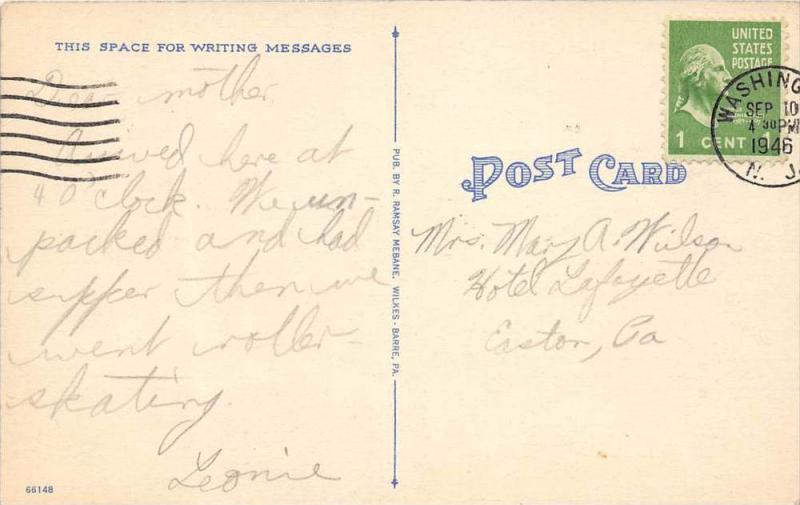 THIS SPACE FOR WRITING MESSAGES
Dear mother,
Arrived here at
4 O'clock. We un-
packed and had
supper then we
went roller-
skating.
Leonie
66148
PUB. BY R. RAMSAY MEBANE, WILKES-BARRE, PA.
UNITED
STATES
POSTAGE
1 CENT
WASHING
SEP 10
4 30 PM
1946
N. J.
POST CARD
Mrs. Mary A. Wilson
Hotel Lafayette
Easton, Pa